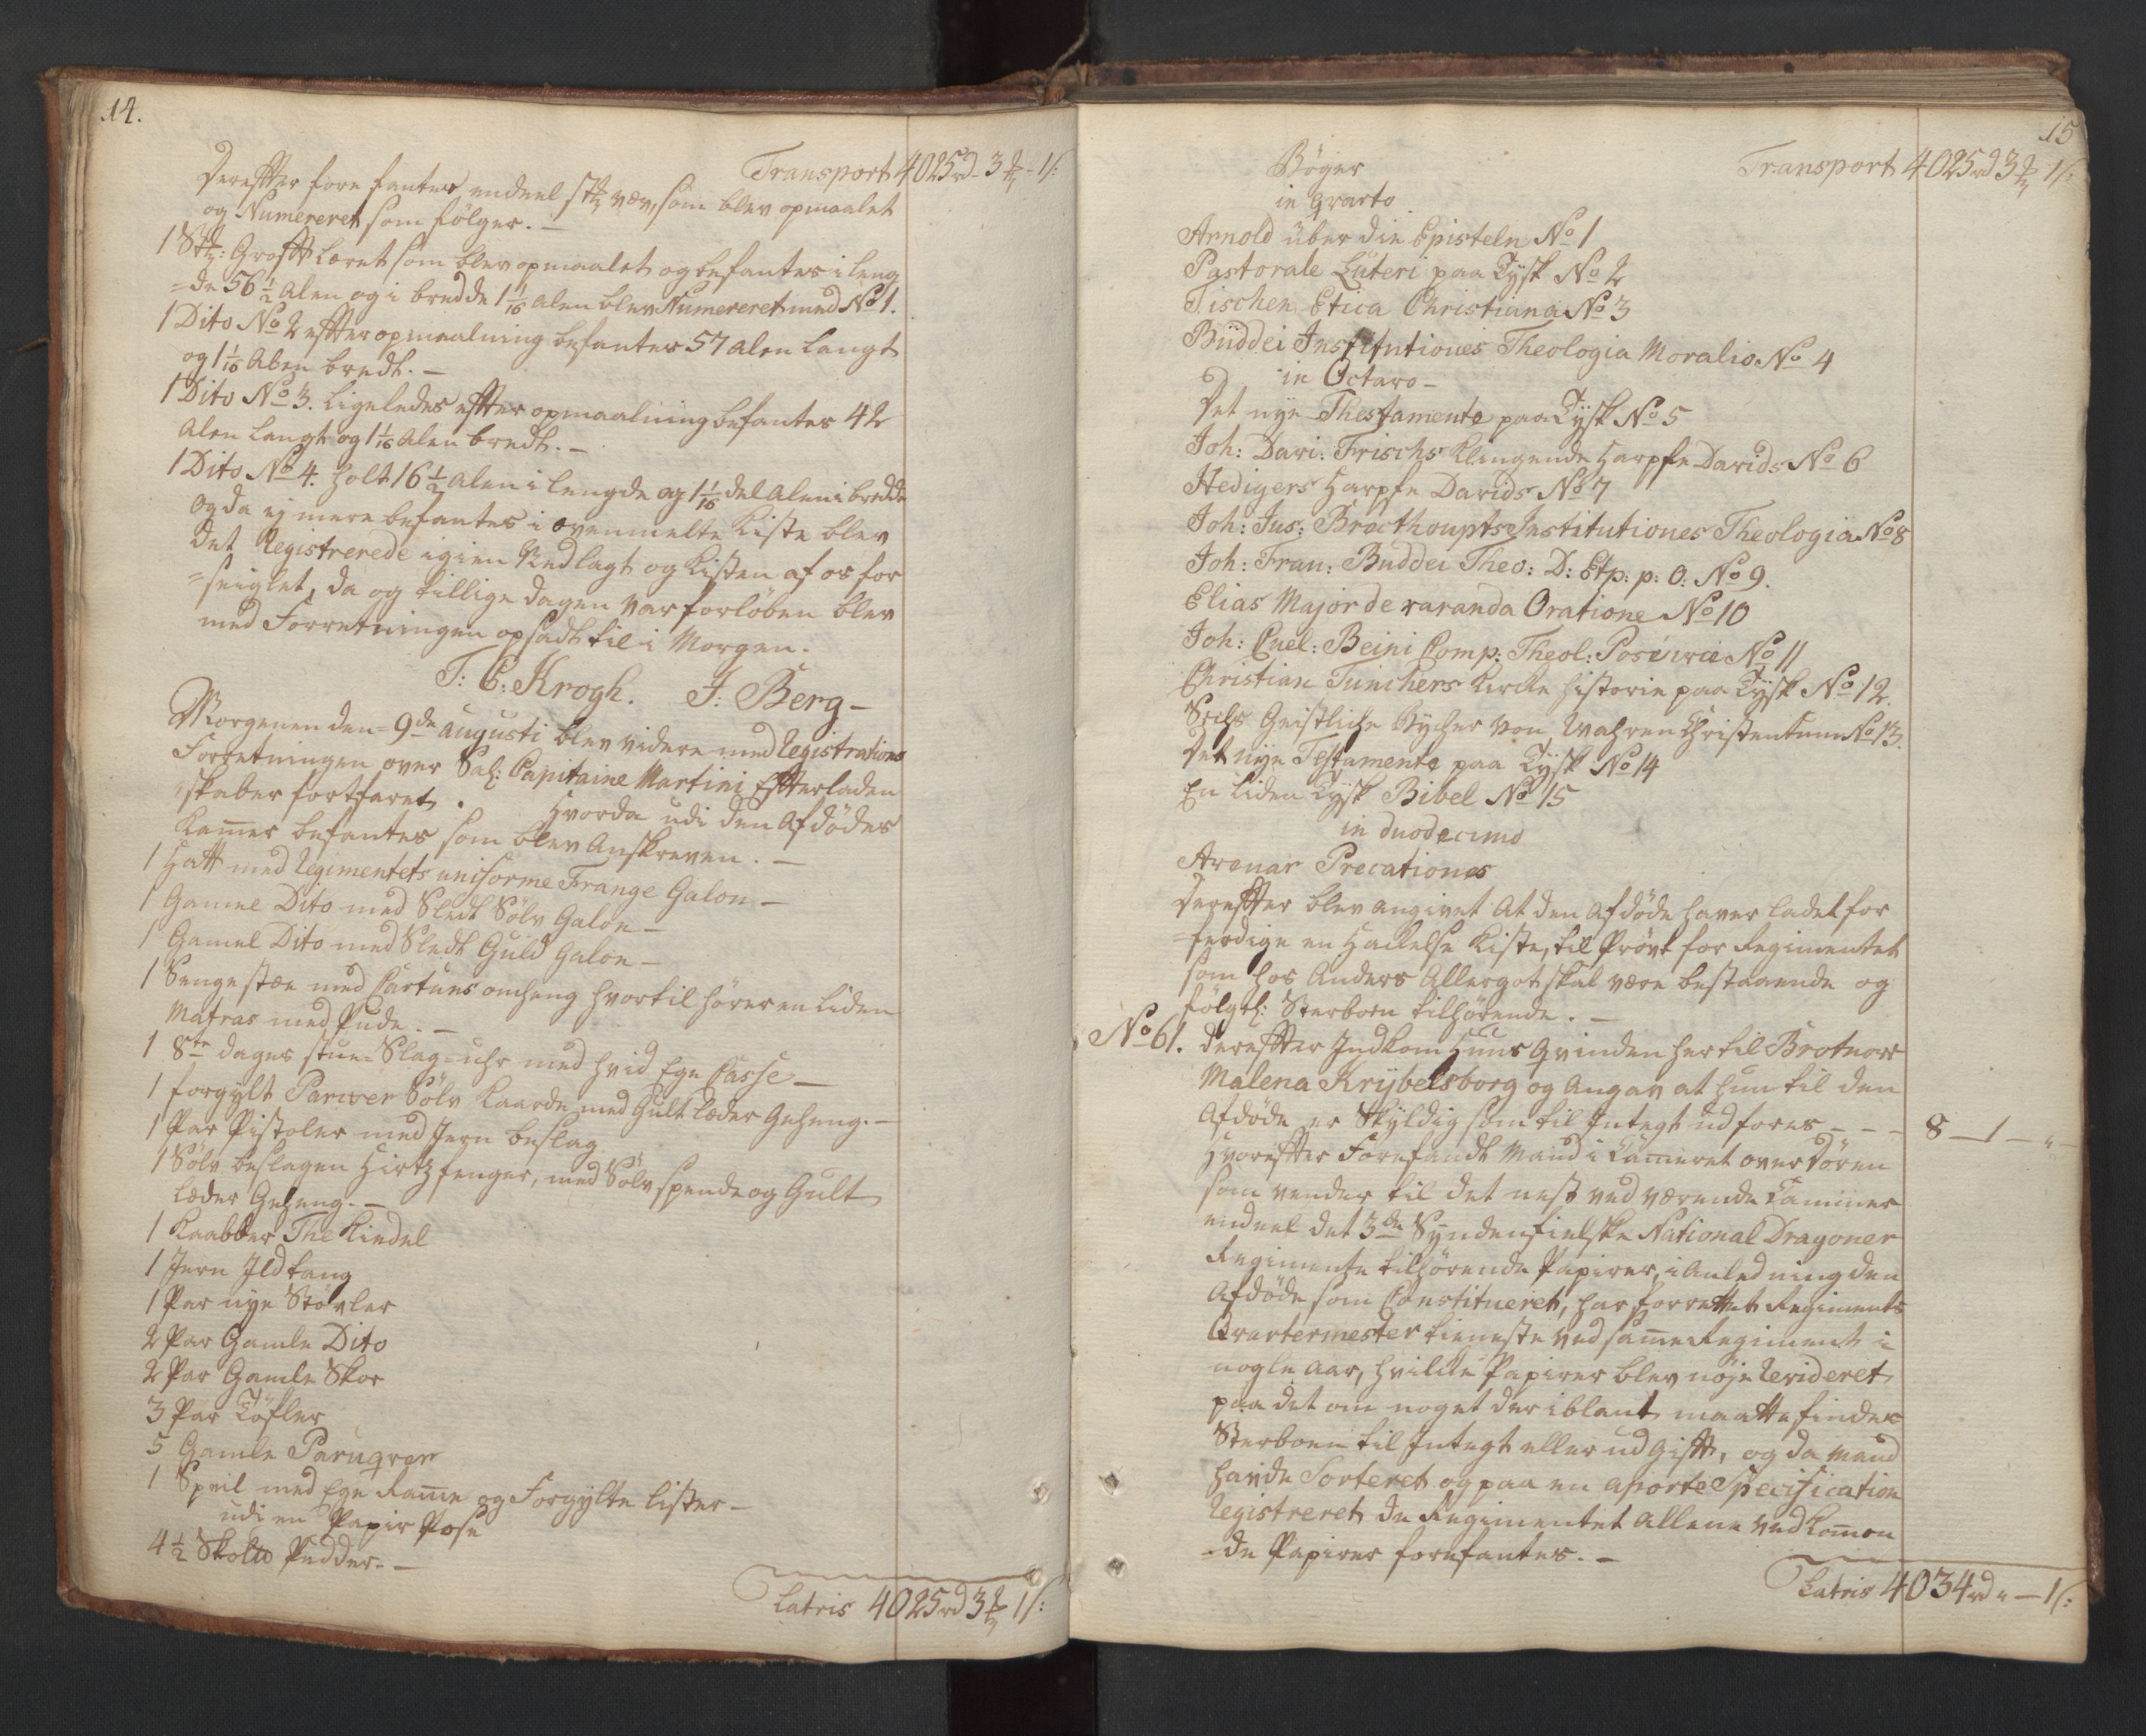 14.
Transport 4025rd - 3 - 1ß:
Derefter fore fantes endeel St: vær, som blev opmaalet
og Numereret som følger. —
1 St: Groft Læret som blev opmaalet og befantes i leng
=de 56 1/2 Alen og i bredde 1 1/16 Alen blev Numereret med No 1.
1 Dito No 2 efter opmaalning befantes 57 Alen langt
og 1 1/16 Alen bredt. —
1 Dito No 3. ligeledes efter opmaalning befantes 42
Alen langt og 1 1/16 Alen bredt. —
1 Dito No 4. holt 16 1/2 Alen i lengde og 1 1/16 del Alen i bredde
og da ej mere befantes i ovenmelte Kiste blev
det Registrerede igien Nedlagt og Kisten af os for
=seiglet, da og tillige dagen var forløben blev
med Forretningen opsadt til i Morgen.
T: C: Krogh. J: Berg —
Morgenen den 9de Augusti blev videre med Registrations
Forretningen over Sal: Capitaine Martini Efterladen
=skaber fortfaret. Hvorda udi den Afdødes
Kamer befantes som blev Anskreven. —
1 Hatt med Regimentets uniforme Frange Galon —
1 Gamel Dito med Sledt Sølv Galon —
1 Gamel Dito med Sledt Guld Galon —
1 Sengestæe med Cartuns omheng hvortil hører en liden
Matras med Pude. —
1 8te dages stue-Slag-uhr med hvid Ege Casse —
1 forgylt Sölv Kaarde med Gult læder Geheng. —
1 Par Pistoler med Jern beslag
1 Sölv beslagen Hirtzfenger, med Sölv spende og Gult
læder Geheng. —
1 Kaabber The Kiedel
1 Jern Ildtang
1 Par nye Støvler
2 Par Gamle Dito
2 Par Gamle Skoe
3 Par Töfler
5 Gamle Paruqver
1 Speil med Ege Rame og Forgylte lister —
udi en Papir Pose
4 1/2 Pudder. —
Latris 4025rd 3 1ß:
15
Transport 4025rd 3 1ß:
Bøger
in Qvarto
Arnold über die Episteln No 1
Pastorale Luteri paa Tysk No 2
Tischen Etica Christiana No 3
Büddei Institutiones Theologia Moralis No 4
in Octavo —
Det nye Thestamente paa Tysk No 5
Joh: Davi: Frischs Klingende Harpfe Davids No 6
Hedigers Harpfe Davids No 7
Joh: Jus: Bracthoupts Institutiones Theologia No 8
Joh: Fran: Buddei Theo: D: Etp: p: O: No 9.
Elias Major de varanda Oratione No 10
Joh: Cuel: Beini Comp: Theol: No 11
Christian Tunchers Kirche historie paa Tysk No 12.
Sechs Geistliche Bycher von Wahren Christentum No 13.
Det nye Testamente paa Tysk No 14
En liden Tysk Bibel No 15
in duodecimo
Avenar Precationes
Derefter blev angivet at den Afdøde haver ladet for
=ferdige en Hackelse Kiste, til Prøve for Regimentet
som hos Anders Allergot skal være bestaaende og
følgl: Sterboen tilhørende. —
No 61. Derefter Indkom Huus Qvinden her til Brotnow
Malena Krybelsborg og Angav at hun til den
Afdøde er Skyldig som til Integt udføres — — — 8 — 1 — "
Hvorefter Forefandt Mand i Kameret over Dören
som vender til det nest ved værende Kammer
endeel det 3de Syndenfielske National Dragoner
Regimente tilhørende Papirer, i Anledning den
Afdøde som Constitueret, har forrettet Regiments
Qvartermester tieneste ved same Regiment i
nogle Aar, hvilke Papirer blev nøje Revideret
paa det om noget der iblant maatte findes
Sterboen til Integt eller udgift, og da Mand
havde Sorteret og paa en aporte Specification
Registreret de Regimentet Allene vedkomen
=de Papirer forefantes. —
Latris 4034rd " — 1ß: